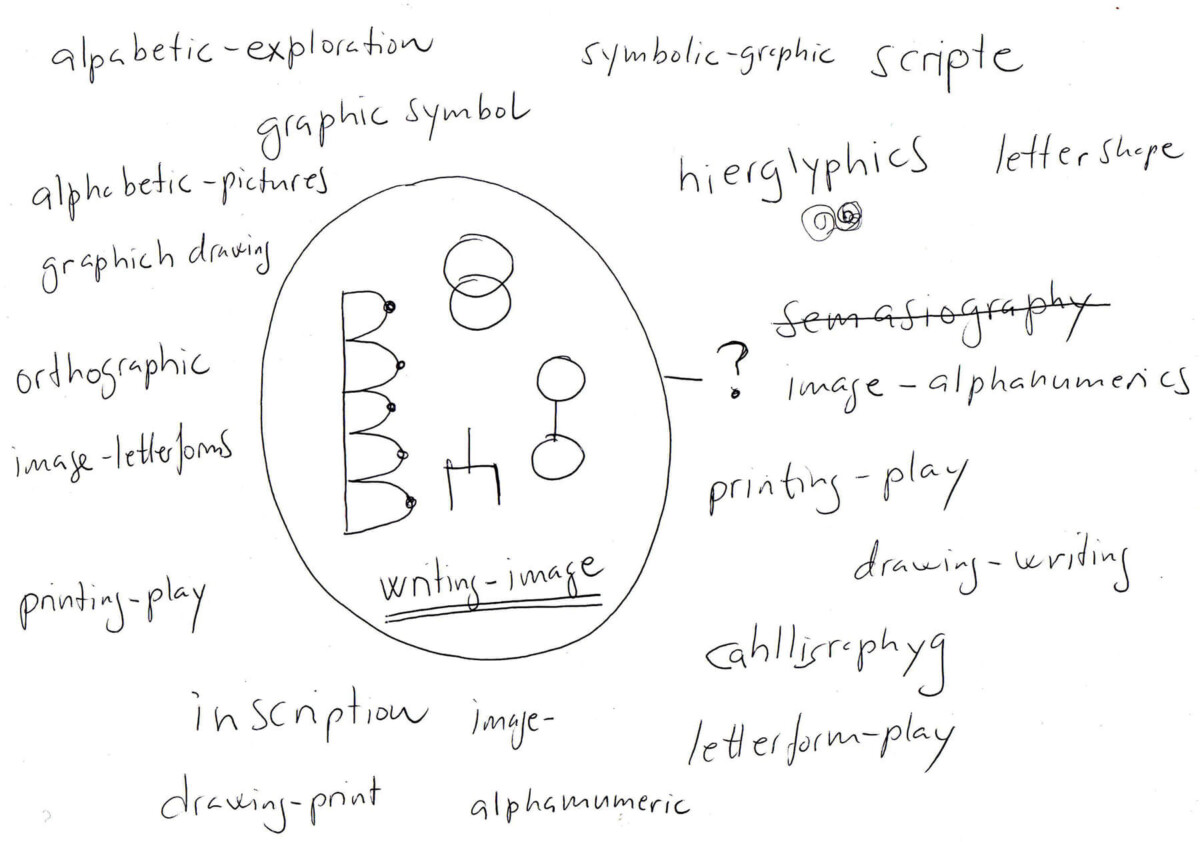 alpabetic-exploration
symbolic-graphic scripte
graphic symbol
hierglyphics
lettershape
alphabetic-pictures
a b
graphich drawing
semasiography
?
orthographic
image-alphanumerics
image-letterforms
printing-play
drawing-writing
writing-image
printing-play
cahlligraphyg
inscription
image-
letterform-play
drawing-print
alphamumeric